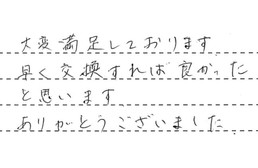 大変満足しております。
早く交換すれば良かった
と思います。
ありがとうございました。